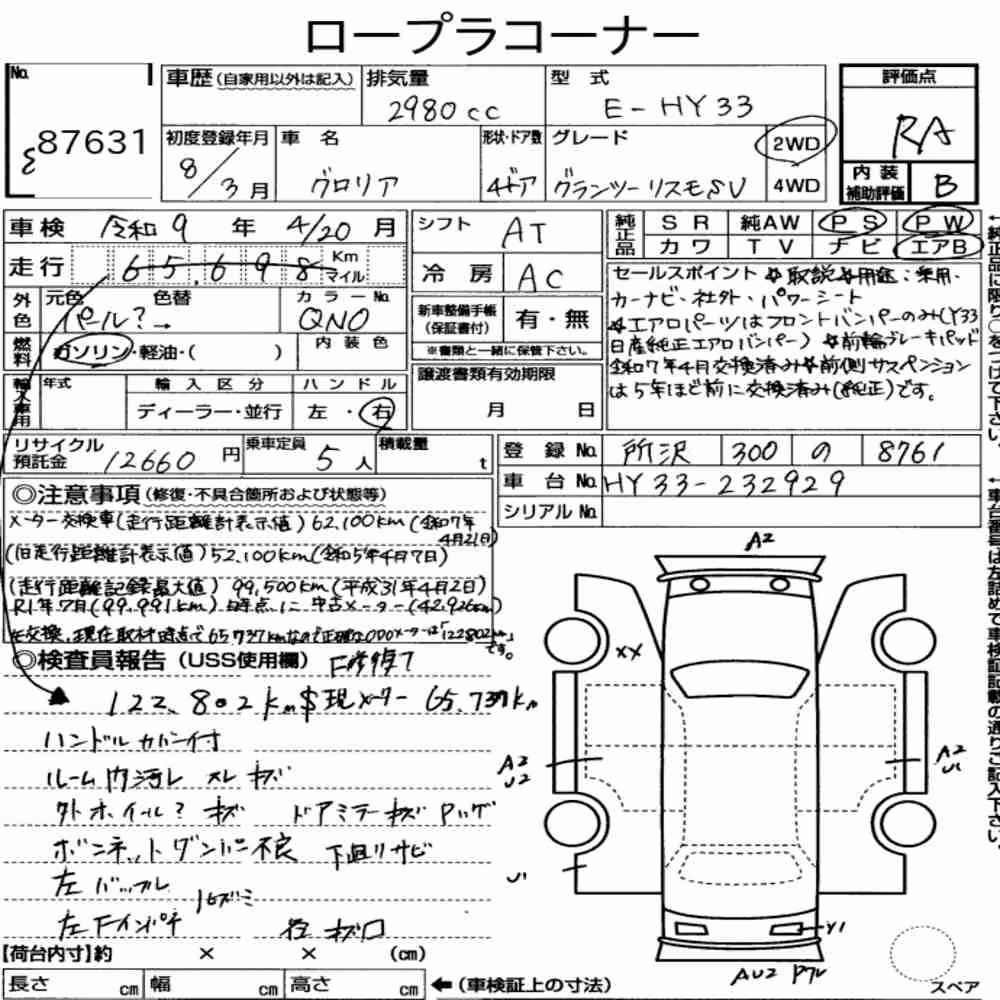 ロープラコーナー
No. 87631
車歴 (自家用以外は記入)
排気量 2980cc
型式 E-HY33
評価点 RA
初度登録年月 8/3月
車名 グロリア
形状・ドア数 4ドア
グレード グランツーリスモSV
2WD
4WD
内装補助評価 B
車検 令和9年4/20月
走行 65,698 Km マイル
シフト AT
冷房 AC
純正品 SR 純AW PS PW
カワ TV ナビ エアB
外色 元色 パール?→ 色替 カラーNo. QN0
燃料 ガソリン・軽油・( ) 内装色
新車整備手帳 (保証書付) 有・無
※書類と一緒に保管下さい。
セールスポイント 取説 用途:乗用・
カーナビ・社外・パワーシート
エアロパーツはフロントバンパーのみ(Y33
日産純正エアロバンパー) 前輪ブレーキパッド
令和7年4月交換済み 前側サスペンション
は5年ほど前に交換済み(純正)です。
輸入車用 年式 輸入区分 ディーラー・並行 ハンドル 左・右
譲渡書類有効期限 月 日
リサイクル預託金 12660円
乗車定員 5人
積載量 t
登録No. 所沢 300 の 8761
車台No. HY33-232929
シリアルNo.
◎注意事項 (修復・不具合箇所および状態等)
メーター交換車(走行距離計表示値)62,100km(令和7年4月21日)
(旧走行距離計表示値)52,100km(令和5年4月7日)
(走行距離記録最大値)99,500km(平成31年4月2日)
R1年7月(99,991km)時点に中古メーター(42,926km)
を交換、現在取材時点で65,737kmなので正確なODOメーターは「122802km」です。
◎検査員報告 (USS使用欄) F修復了
122,802km $現メーター 65,737km
ハンドルカバー付
ルーム内汚レ スレ キズ
外ホイール? キズ ドアミラーキズ Pッゲ
ボンネットダンパー不良 下廻りサビ
左バッフル
左Fインパネ
各キズ口
A2
XX
A2
U2
A2
U1
U1
Y1
AU2
スペア
【荷台内寸】約 × × (cm)
長さ cm 幅 cm 高さ cm ←(車検証上の寸法)
←純正品に限り○をつけて下さい。
←車台番号は左詰めで車検証記載の通りご記入下さい。